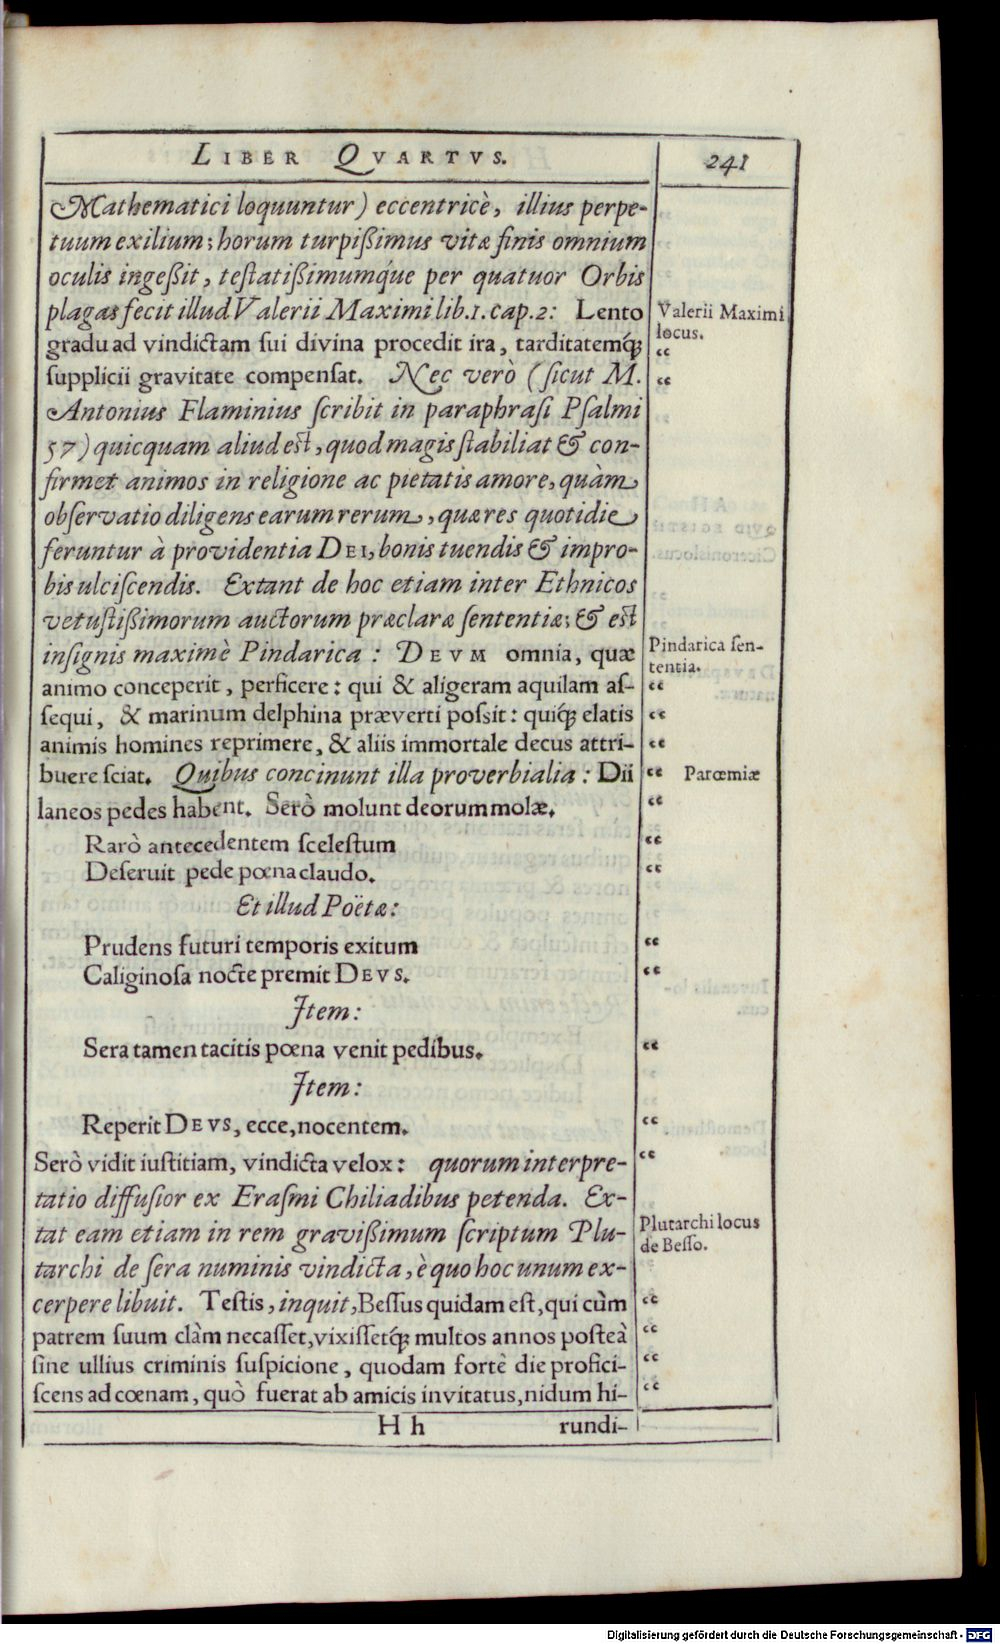 LIBER QVARTVS.
241
Mathematici loquuntur) eccentricè, illius perpe-
tuum exilium; horum turpißimus vitæ finis omnium
oculis ingeßit, teſtatißimumq́ue per quatuor Orbis
plagas fecit illud Valerii Maximi lib.1. cap.2: Lento
gradu ad vindictam ſui divina procedit ira, tarditatemq́;
ſupplicii gravitate compenſat. Nec verò (ſicut M.
Antonius Flaminius ſcribit in paraphraſi Pſalmi
57) quicquam aliud eſt, quod magis ſtabiliat & con-
firmet animos in religione ac pietatis amore, quàm
obſervatio diligens earum rerum, quæ res quotidie
feruntur à providentia DEI, bonis tuendis & impro-
bis ulciſcendis. Extant de hoc etiam inter Ethnicos
vetuſtißimorum auctorum præclaræ ſententiæ; & eſt
inſignis maximè Pindarica: DEVM omnia, quæ
animo conceperit, perficere: qui & aligeram aquilam aſ-
ſequi, & marinum delphina præverti poſsit: quiq́; elatis
animis homines reprimere, & aliis immortale decus attri-
buere ſciat. Quibus concinunt illa proverbialia: Dii
laneos pedes habent. Serò molunt deorum molæ.
Rarò antecedentem ſceleſtum
Deſeruit pede pœna claudo.
Et illud Poëtæ:
Prudens futuri temporis exitum
Caliginoſa nocte premit DEVS.
Item:
Sera tamen tacitis pœna venit pedibus.
Item:
Reperit DEVS, ecce, nocentem.
Serò vidit iuſtitiam, vindicta velox: quorum interpre-
tatio diffuſior ex Eraſmi Chiliadibus petenda. Ex-
tat eam etiam in rem gravißimum ſcriptum Plu-
tarchi de ſera numinis vindicta, è quo hoc unum ex-
cerpere libuit. Teſtis, inquit, Beſſus quidam eſt, qui cùm
patrem ſuum clàm necaſſet, vixiſſetq́; multos annos poſteà
ſine ullius criminis ſuſpicione, quodam fortè die profici-
ſcens ad cœnam, quò fuerat ab amicis invitatus, nidum hi-
H h
rundi-
Valerii Maximi
locus.
Pindarica ſen-
tentia.
Parœmiæ
Plutarchi locus
de Beſſo.
Digitalisierung gefördert durch die Deutsche Forschungsgemeinschaft - DFG